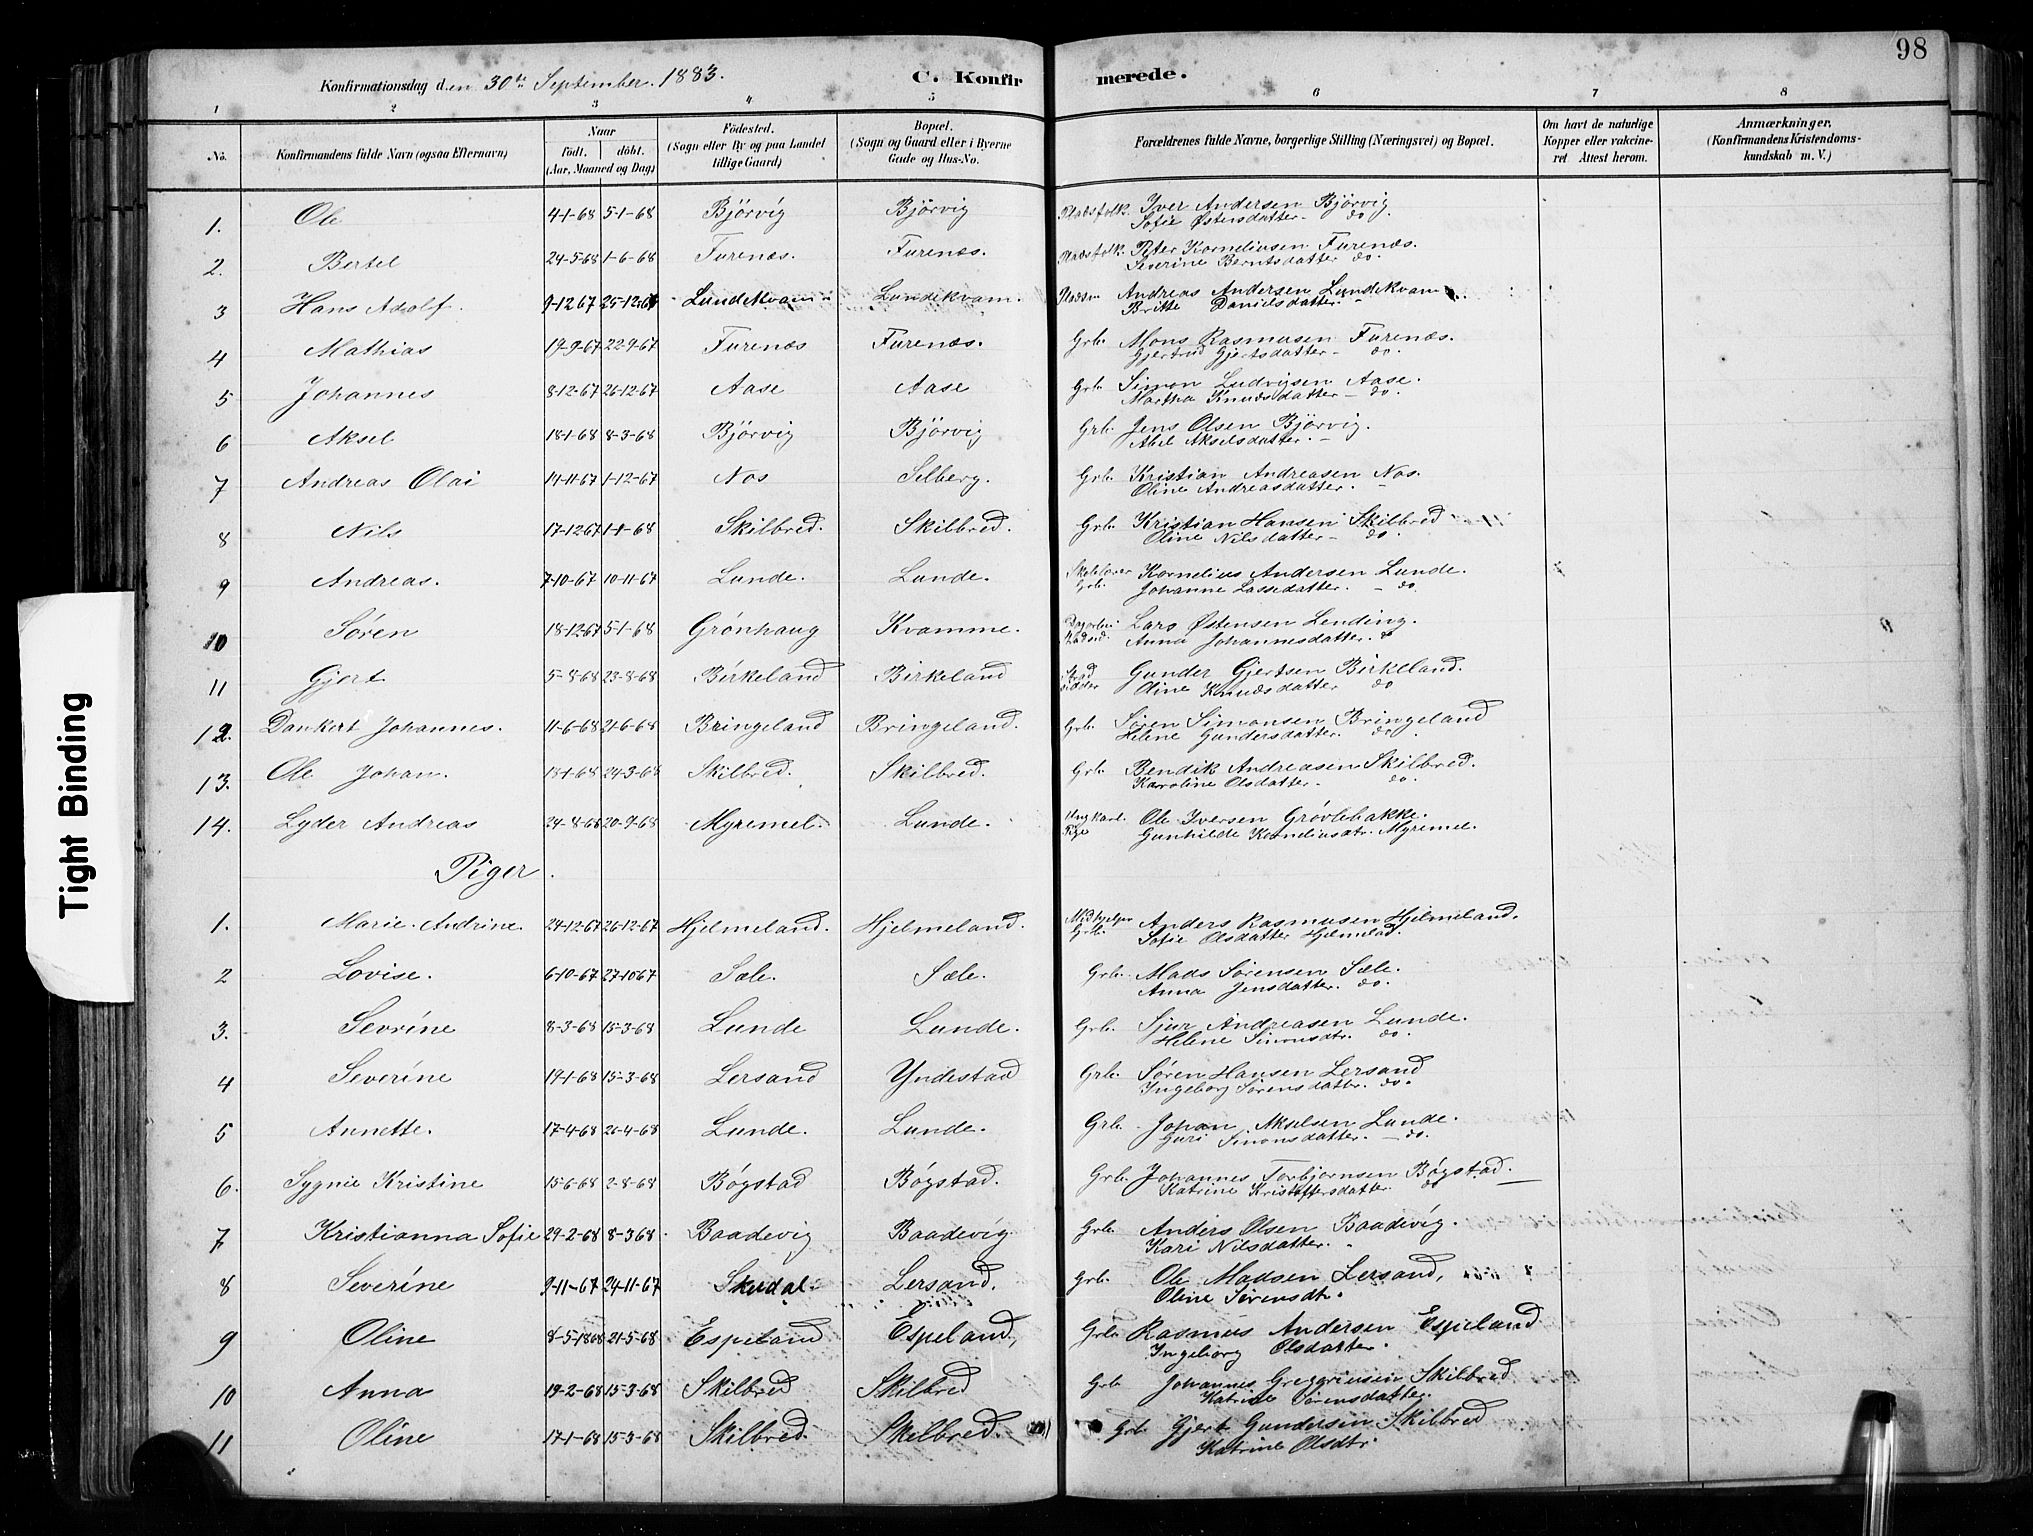 98
Konfirmationsdag den 30te September 1883.
C. Konfirmerede.
1 2 3 4 5 6 7 8
No. Konfirmandens fulde Navn (ogsaa Efternavn) Naar født. døbt. (Aar, Maaned og Dag) Födested. (Sogn eller By og paa Landet tillige Gaard) Bopæl. (Sogn og Gaard eller i Byerne Gade og Hus-No. Forældrenes fulde Navne, borgerlige Stilling (Næringsvei) og Bopæl. Om havt de naturlige Kopper eller vakcineret. Attest herom. Anmærkninger. (Konfirmandens Kristendomskundskab m. V.)
1. Ole 4-1-68 5-1-68 Bjørvig Bjørvig Pladsfolk. Iver Andersen Bjørvig
Sofie Østensdatter - do
2. Bertel 24-5-68 1-6-68 Furenæs. Furenæs. Pladsfolk. Peter Korneliusen Furenæs.
Severine Berntsdatter do.
3 Hans Adolf. 9-12 67 25-12-67 Lundekvam Lundekvam. Pladsm Andreas Andersen Lundekvam
Britte Danielsdatter -
4 Mathias 19-9-67 22-9-67 Furenæs Furenæs. Grb. Mons Rasmusen Furenæs.
Gjertrud Gjertsdatter - do.
5 Johannes 8-12-67 26-12-67 Aase Aase Grb. Simon Ludvigsen Aase.
Martha Knudsdatter - do.
6 Aksel 18-1-68 8-3-68 Bjørvig Bjørvig Grb. Jens Olsen Bjørvig.
Abel Akselsdatter. -
7 Andreas Olai 14-11-67 1-12-67 Nos Selberg. Grb. Kristian Andreasen Nos.
Oline Andreasdatter. -
8 Nils 17-12-67 1-1-68 Skilbred. Skilbred. Grb. Kristian Hansen Skilbred
Oline Nilsdatter - do.
9 Andreas. 7-10-67 10-11-67 Lunde. Lunde. Skolelærer Kornelius Andersen Lunde.
Grb. Johanne Lassedatter. - do.
10 Søren 18-12-67 5-1-68 Grønhaug Kvamme. Lars Østensen Lending.
Anna Johannesdatter. do
11 Gjert 5-8-68 23-8-68 Birkeland Birkeland Gunder Gjertsen Birkeland.
Oline Knudsdatter do
12. Dankert Johannes. 11-6-68 21-6-68 Bringeland Bringeland. Grb. Søren Simonsen Bringeland
Helene Gundersdatter. do.
13. Ole Johan. 18-1-68 24-3-68 Skilbred. Skilbred. Grb. Bendik Andreasen Skilbred.
Karoline Olsdatter - do.
14. Lyder Andreas 24-8-68 20-9-68 Myremel. Lunde. Ungkarl Ole Iversen Grøvlebakke.
Pige Gunhilde Korneliusdtr. Myremel.
Piger.
1. Marie Andrine 24-12-67 26-12-67 Hjelmeland. Hjelmeland. Medhjelper Anders Rasmusen Hjelmeland.
Grb. Sofie Olsdatter Hjelmelad.
2 Lovise. 6-10-67 27-10 67 Sæle. Sæle. Grb. Mads Sørensen Sæle.
Anna Jensdatter. do.
3. Sevrine 8-3-68 15-3-68 Lunde Lunde. Grb. Sjur Andreasen Lunde.
Helene Simonsdtr. do.
4 Severine 19-1-68 15-3-68 Lersand Yndestad Grb. Søren Hansen Lersand
Ingeborg Sørensdatter. do.
5 Annette. 17-4-68 26-4-68 Lunde. Lunde. Grb. Johan Akselsen Lunde.
Guri Simonsdatter. - do.
6. Sygnie Kristine 15-6-68 2-8-68 Bøgstad Bøgstad. Grb. Johannes Torbjørnsen Bøgstad.
Katrine Kristoffersdatter do
7 Kristianna Sofie 29-2-68 8-3 68 Baadevig Baadevig Grb. Anders Olsen Baadevig.
Kari Nilsdatter.
8 Severine 9-11-67 24-11-67 Skudal Lersand. Grb. Ole Madsen Lersand,
Oline Sørensdtr.
9 Oline 8-5-1868 21-5-68 Espeland Espeland, Grb Rasmus Andersen Espeland
Ingeborg Olsdatter.
10 Anna 19-2-68 15-3-68 Skilbred Skilbred Grb Johannes Greggriusen Skilbred
Katrine Sørensdatter.
11 Oline 17-1-68 15-3-68 Skilbred Skilbred. Grb. Gjert Gundersen Skilbred
Katrine Olsdtr.
Tight Binding